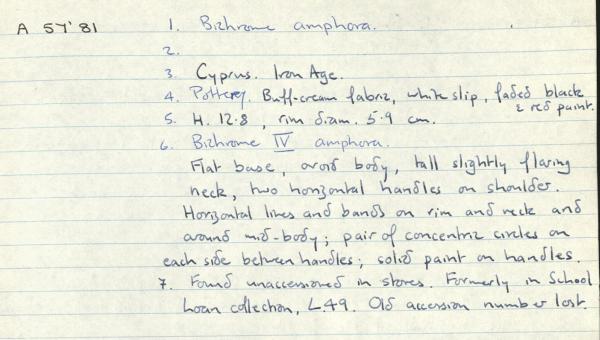 A 57'81
1. Bichrome amphora.
2.
3. Cyprus. Iron Age.
4. Pottery. Buff-cream fabric, white slip, faded black
& red paint.
5. H. 12.8, rim diam. 5.9 cm.
6. Bichrome IV amphora.
Flat base, ovoid body, tall slightly flaring
neck, two horizontal handles on shoulder.
Horizontal lines and bands on rim and neck and
around mid-body; pair of concentric circles on
each side between handles; solid paint on handles.
7. Found unaccessioned in stores. Formerly in School
Loan collection, L.49. Old accession number lost.